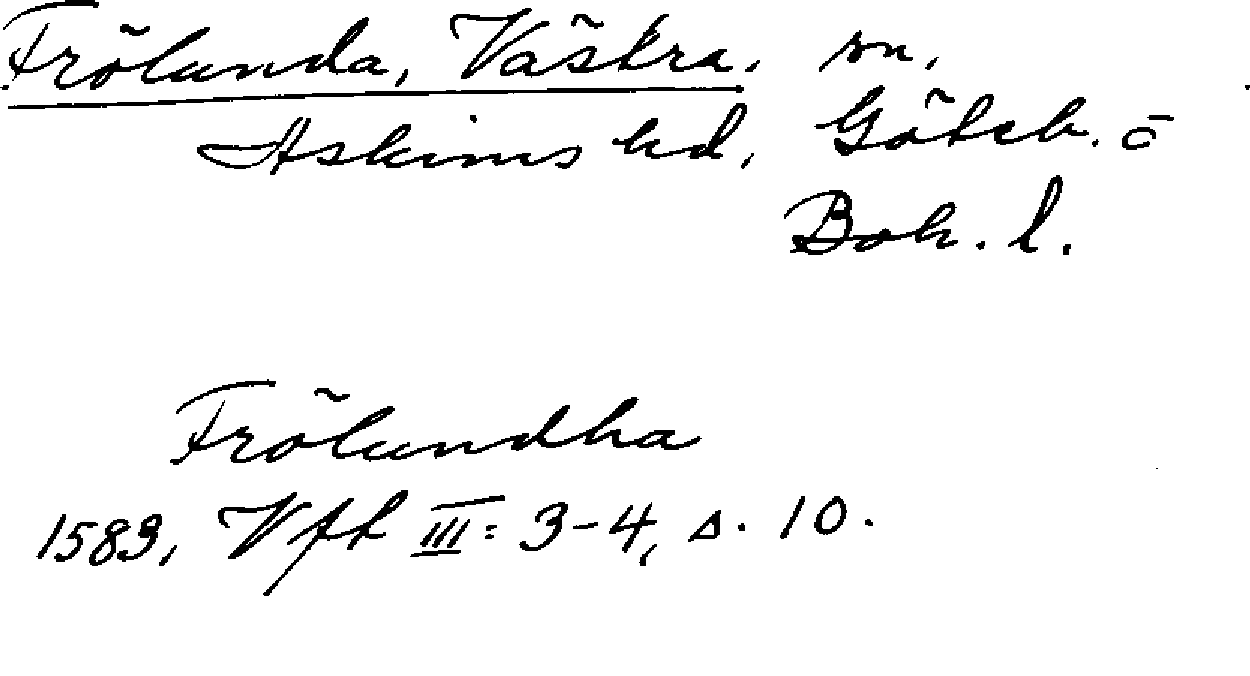 Frölunda, Västra, sn,
Askims hd, Göteb. o
Boh. l.
Frölundha
1583, Vft III: 3-4, s. 10.